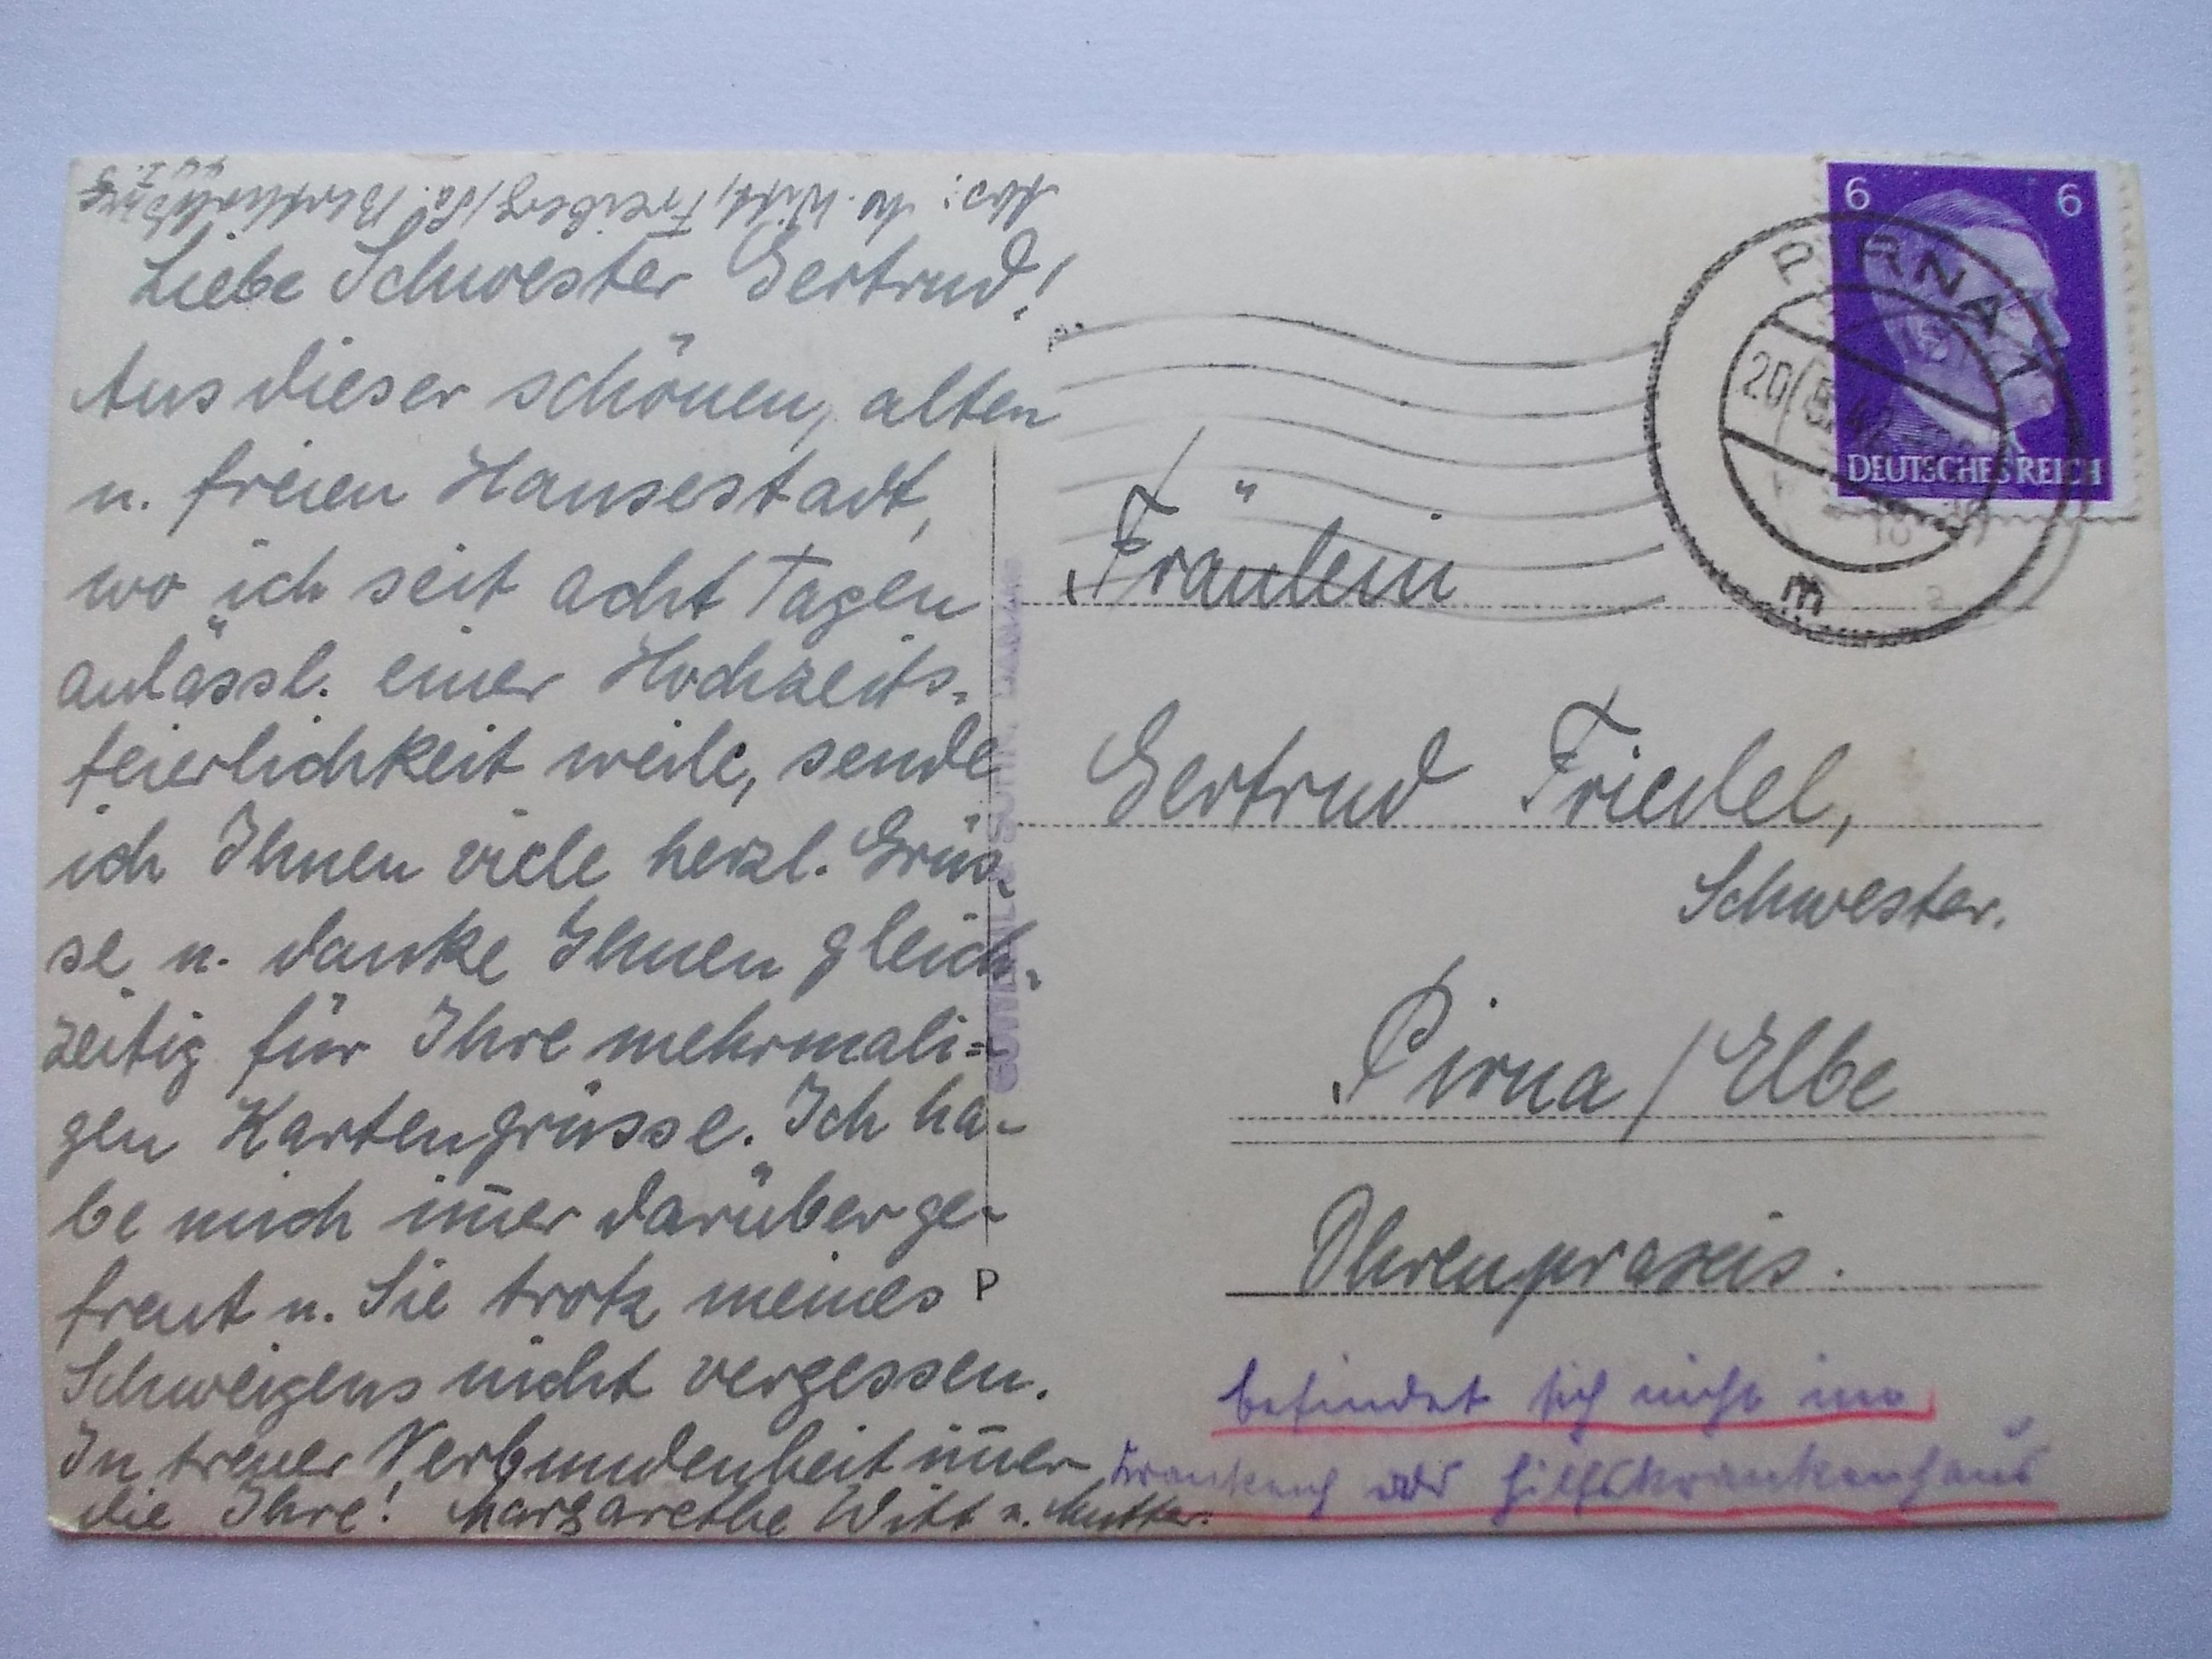 Abs: M. Witt, Freiberg/Sa.
Liebe Schwester Gertrud!
Aus dieser schönen, alten
u. freien Hansestadt,
wo ich seit acht Tagen
anlässl. einer Hochzeits-
feierlichkeit weile, sende
ich Ihnen viele herzl. Grüs-
se u. danke Ihnen gleich-
zeitig für Ihre mehrmali-
gen Kartengrüsse. Ich ha-
be mich im̅er darüber ge-
freut u. Sie trotz meines
Schweigens nicht vergessen.
In treuer Verbundenheit im̅er
die Ihre! Margarethe Witt u. Mutter.
P
6 6
DEUTSCHES REICH
PIRNA 1
20 5. 42
18
m
Fräulein
Gertrud Friedel,
Schwester.
Pirna / Elbe
Ohrenpraxis.
befindet sich nicht im
Krankenh oder Hilfskrankenhaus